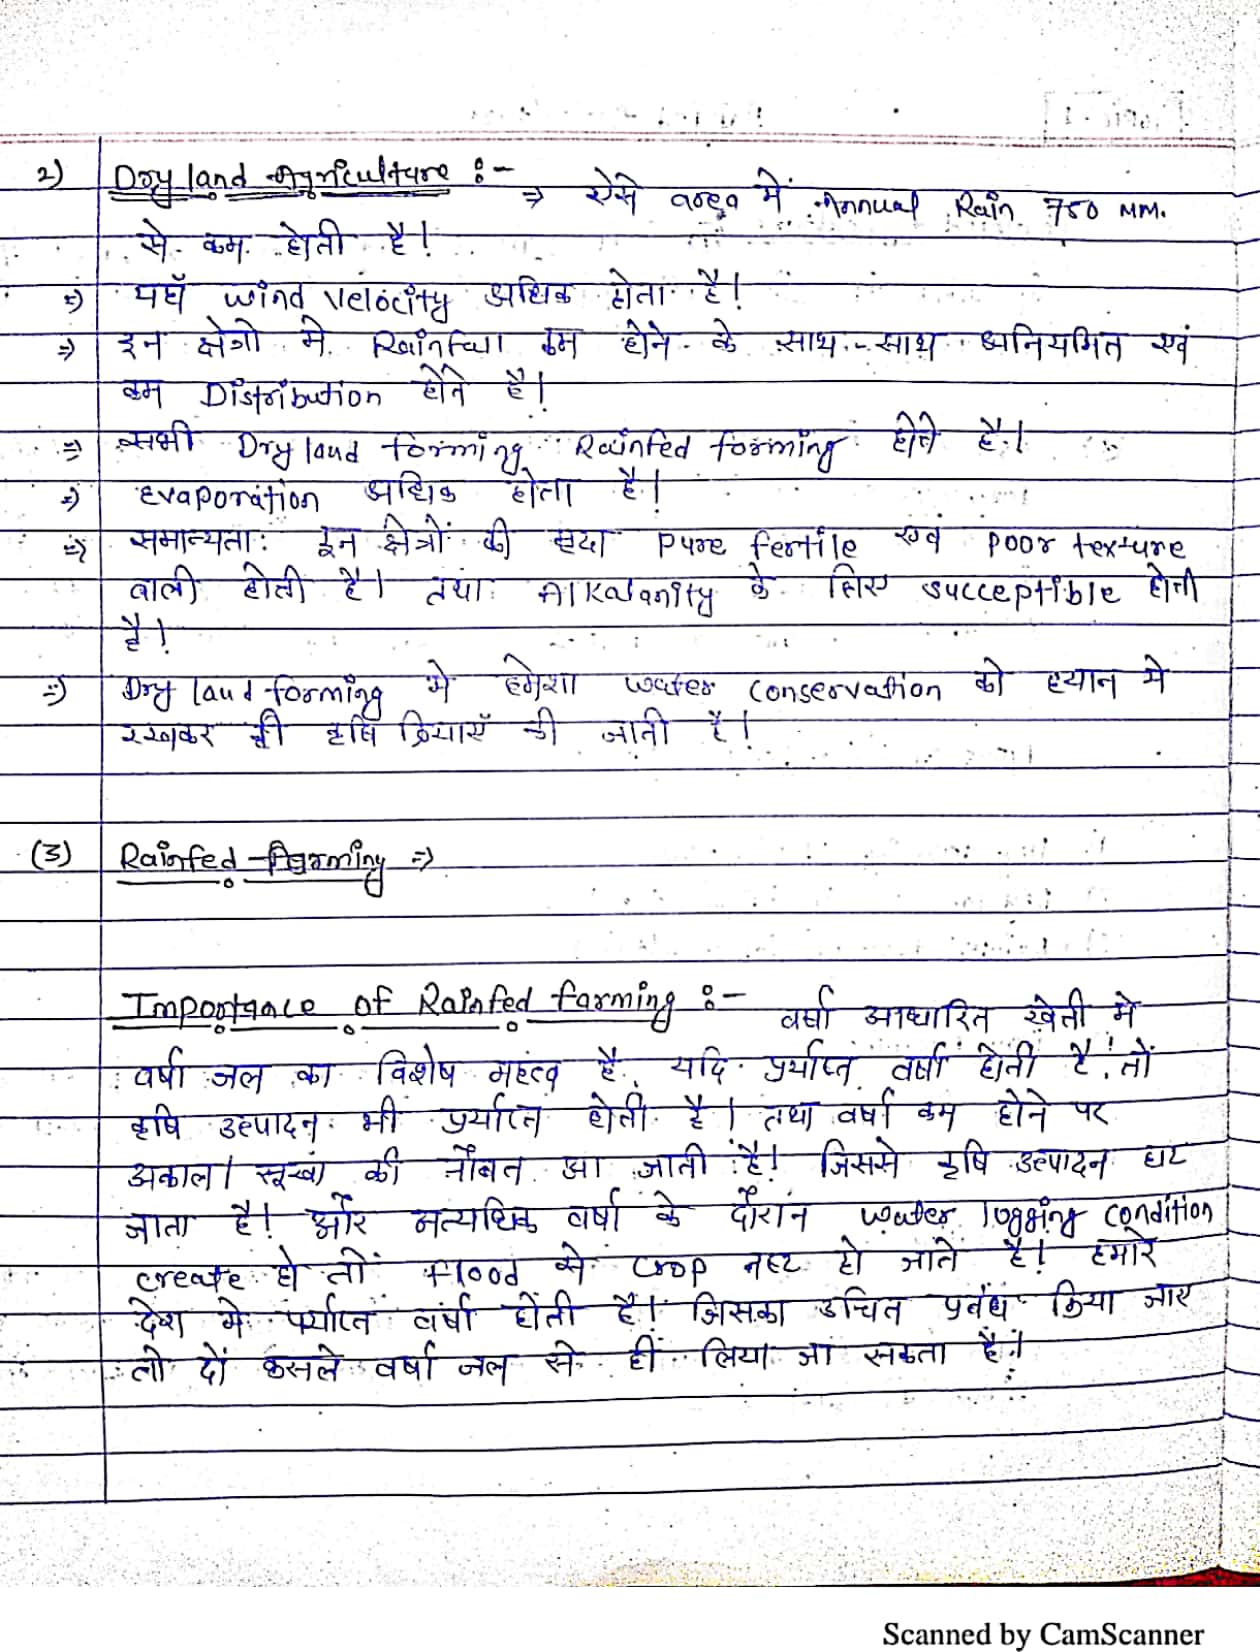 2) Dry land Agriculture :- ⇒ ऐसे area में Annual Rain 750 MM.
से कम होती है!
⇒ यहाँ wind velocity अधिक होता है!
⇒ इन क्षेत्रो मे Rainfall कम होने के साथ-साथ अनियमित एवं
कम Distribution होते है!
⇒ सभी Dry land forming Rainfed forming होते है!
⇒ Evaporation अधिक होता है!
⇒ समान्यता: इन क्षेत्रों की मृदा Pure fertile एवं Poor texture
वाली होती है। तथा Alkalanity के लिए succeptible होती
है!
⇒ Dry land forming मे हमेशा water conservation को ध्यान मे
रखकर ही कृषि क्रियाएँ की जाती है!
(3) Rainfed Farming ⇒
Importance of Rainfed farming :- वर्षा आधारित खेती मे
वर्षा जल का विशेष महत्व है, यदि पर्याप्त वर्षा होती है! तो
कृषि उत्पादन भी पर्याप्त होती है। तथा वर्षा कम होने पर
अकाल/सूखा की नौबत आ जाती है! जिससे कृषि उत्पादन घट
जाता है! और अत्यधिक वर्षा के दौरान water logging condition
create हो तो flood से crop नष्ट हो जाते है! हमारे
देश मे पर्याप्त वर्षा होती है! जिसका उचित प्रबंध किया जाए
तो दो फसले वर्षा जल से ही लिया जा सकता है!
Scanned by CamScanner